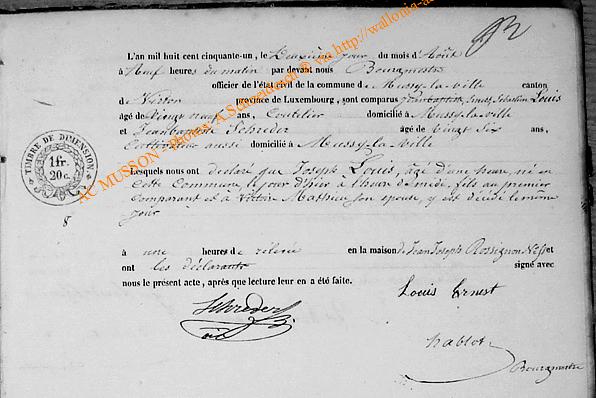 L'an mil huit cent cinquante-un, le Deuxième jour du mois d'Août
à Neuf heures du matin par devant nous Bourgmestre
officier de l'état civil de la commune de Mussy-la-ville canton
de Virton province de Luxembourg, sont comparus Jeanbaptiste Ernest Sébastien Louis
âgé de vingt neuf ans, Coutelier domicilié à Mussy-la-ville
et Jeanbaptiste Schréder âgé de vingt Six ans,
Cultivateur aussi domicilié à Mussy-la-ville
Lesquels nous ont déclaré que Joseph Louis, âgé d'une heure, né en
Cette Commune, le jour d'hier à l'heure de midi, fils au premier
Comparant et à Victoire Mathieu son épouse, y est décédé le même
jour
à une heures de relevée en la maison de Jean Joseph Rossignon et
ont les déclarants signé avec
nous le présent acte, après que lecture leur en a été faite.
Schréder JB. Louis Ernest
hablot
Bourgmestre
TIMBRE DE DIMENSION
1 fr.
20 c.
8
AC MUSSON - Photos: A.Schneiderich ® via http://wallonia-a